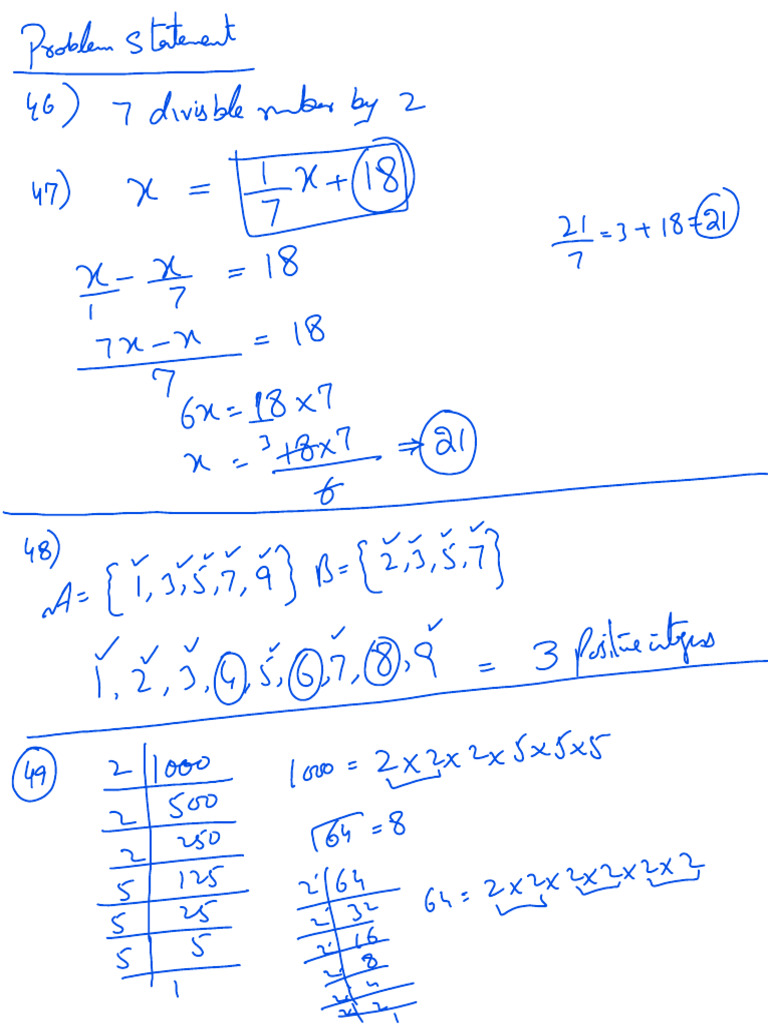 Problem statement
46) 7 divisble number by 2
47) x = 1/7 x + 18
21/7 = 3 + 18 = 21
x/1 - x/7 = 18
7x - x / 7 = 18
6x = 18 x 7
x = 3 18 x 7 / 6 ⇒ 21
48) A = {1, 3, 5, 7, 9} B = {2, 3, 5, 7}
1, 2, 3, 4, 5, 6, 7, 8, 9 = 3 Positive integers
49
2 | 1000
2 | 500
2 | 250
5 | 125
5 | 25
5 | 5
1
1000 = 2 x 2 x 2 x 5 x 5 x 5
√64 = 8
2 | 64
2 | 32
2 | 16
2 | 8
2 | 4
2 | 2
1
64 = 2 x 2 x 2 x 2 x 2 x 2